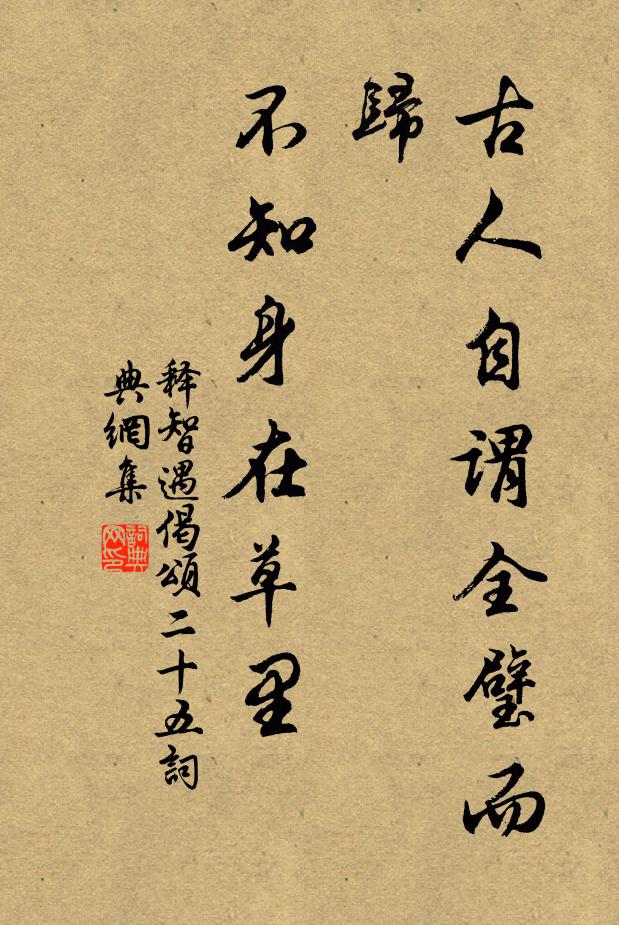 古人自谓全璧而
歸
不知身在草里
释智遇偈頌二十五詞
典網集
詞典
网印